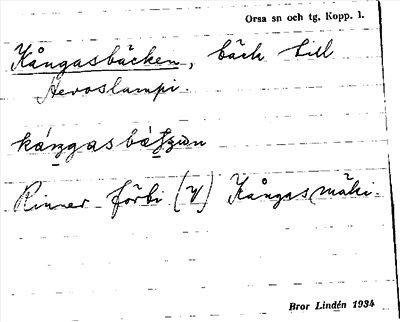 Orsa sn och tg, Kopp. l.
Kångasbäcken, bäck till
Hevoslampi.
Rinner förbi (V) Kångasmäki.
Bror Lindén 1934